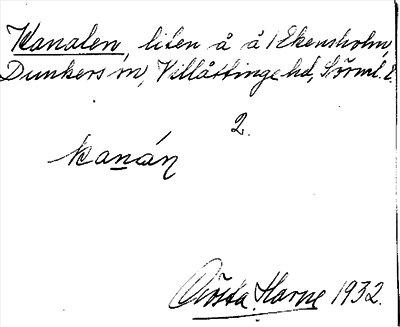 Kanalen, liten å å Ekensholm,
Dunkers sn, Villåttinge hd, Sörml.
2.
kanán
Gösta Harne 1932.